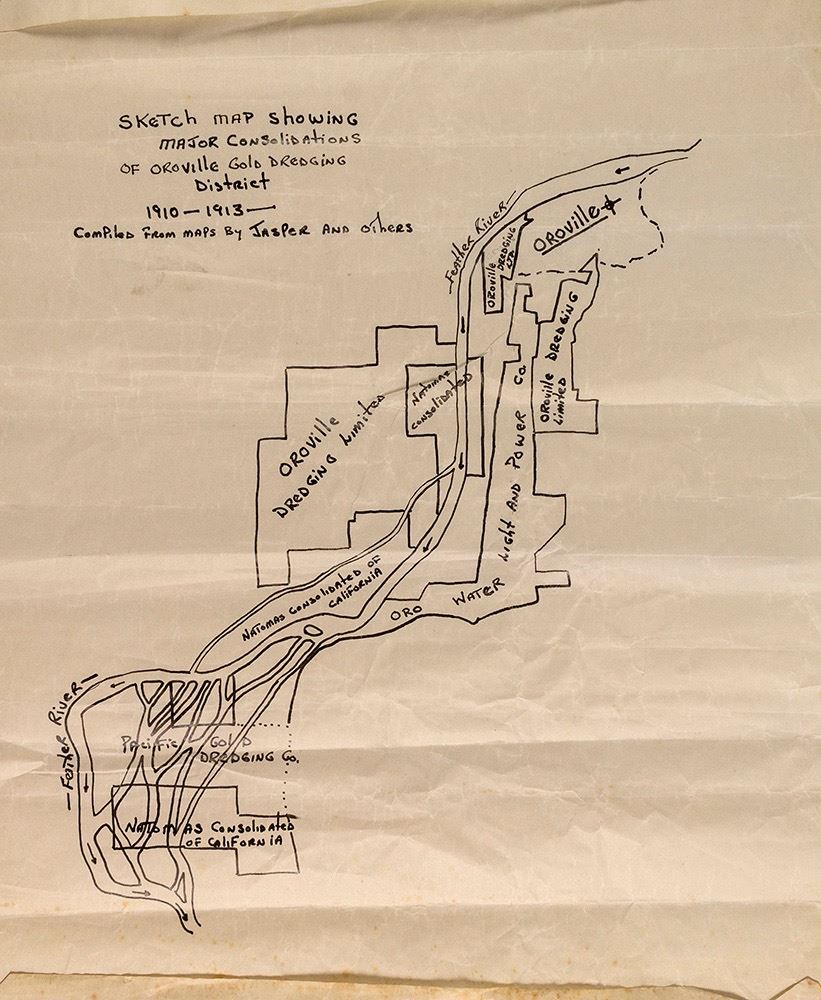 SKETCH MAP SHOWING
MAJOR CONSOLIDATIONS
OF OROVILLE GOLD DREDGING
DISTRICT
1910 — 1913 —
COMPILED FROM MAPS BY JASPER AND OTHERS
FEATHER RIVER
OROVILLE
DREDGING
LTD
OROVILLE
OROVILLE DREDGING
LIMITED
NATOMAS
CONSOLIDATED
OROVILLE
DREDGING LIMITED
ORO WATER LIGHT AND POWER CO.
NATOMAS CONSOLIDATED OF
CALIFORNIA
— FEATHER RIVER —
PACIFIC GOLD
DREDGING CO.
NATOMAS CONSOLIDATED
OF CALIFORNIA